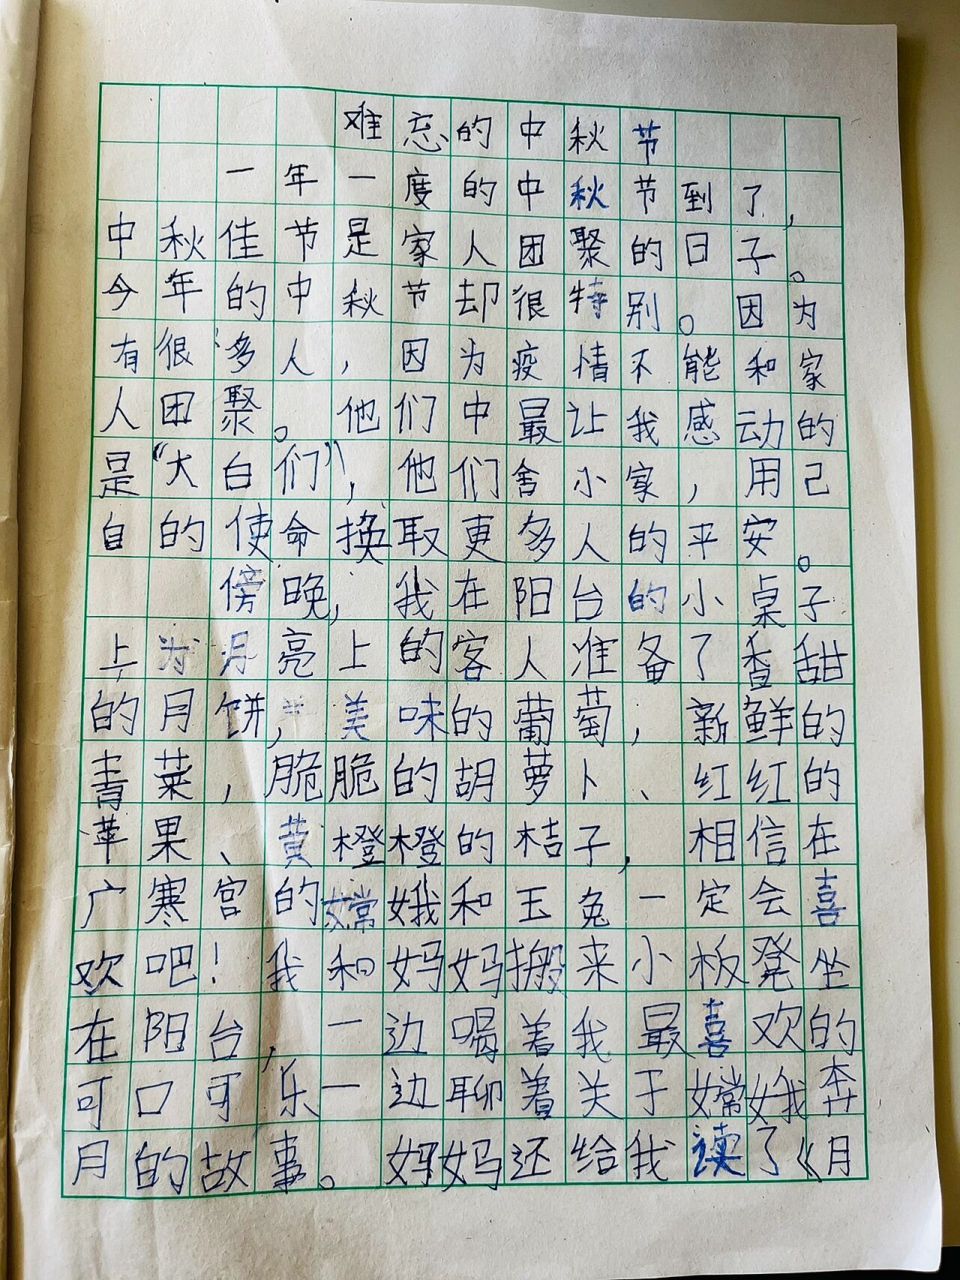 难忘的中秋节
一年一度的中秋节到了，
中秋佳节是家人团聚的日子。
今年的中秋节却很特别。因为
有很多人，因为疫情不能和家
人团聚。他们中最让我感动的
是“大白们”，他们舍小家，用己
自的使命换取更多人的平安。
傍晚，我在阳台的小桌子
上，为月亮上的客人准备了香甜
的月饼，美味的葡萄，新鲜的
青菜，脆脆的胡萝卜、红红的
苹果、黄橙橙的桔子，相信在
广寒宫的嫦娥和玉兔一定会喜
欢吧！我和妈妈搬来小板凳坐
在阳台，一边喝着我最喜欢的
可口可乐一边聊着关于嫦娥奔
月的故事。妈妈还给我读了《月